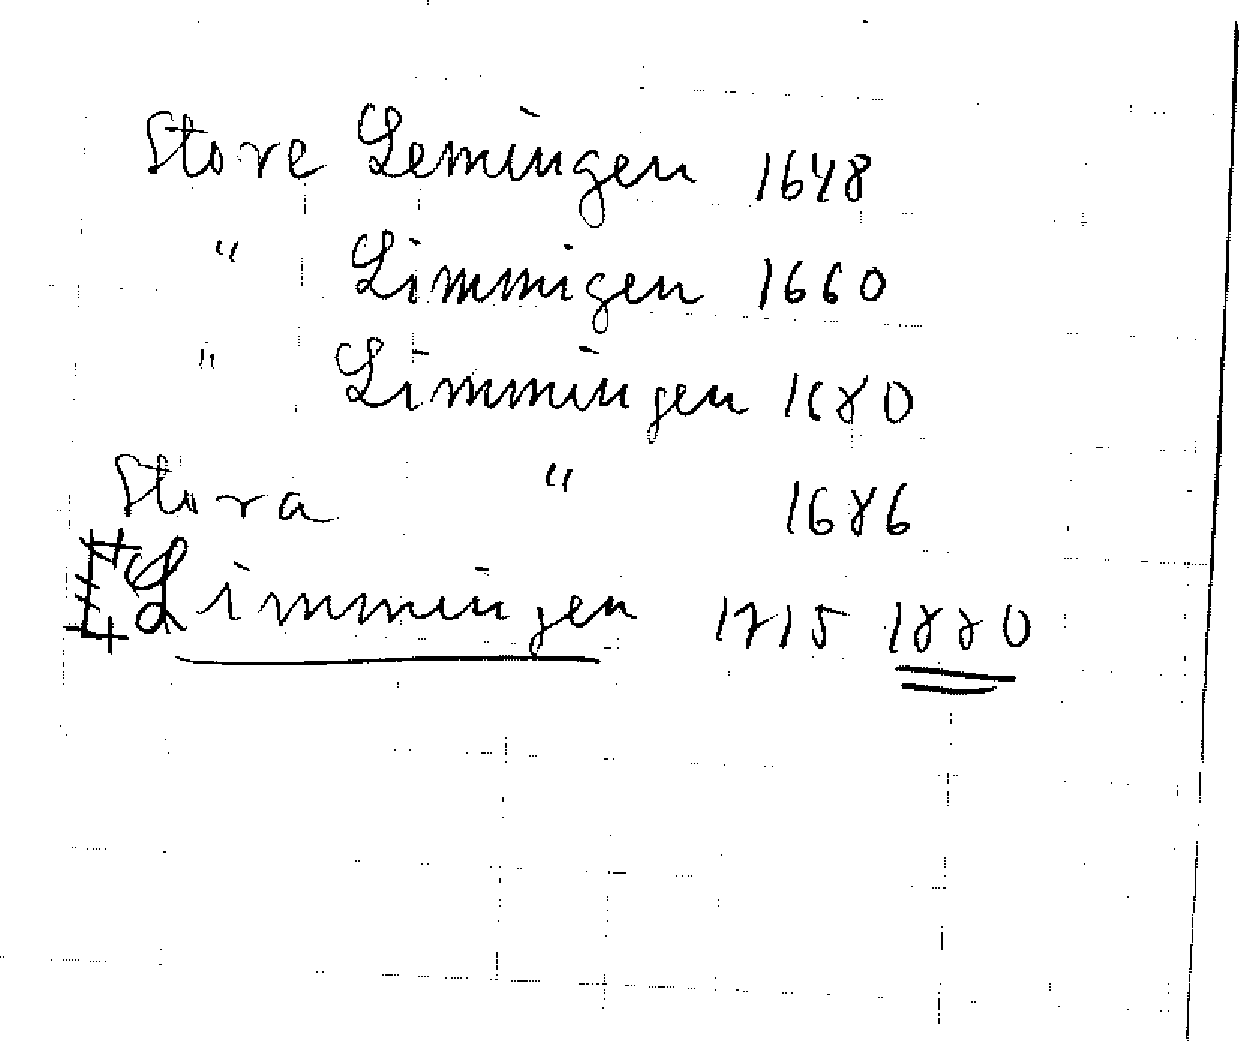 Store Lemingen 1648
" Limmigen 1660
" Limmingen 1680
Stora " 1686
[Limmingen 1715 1880